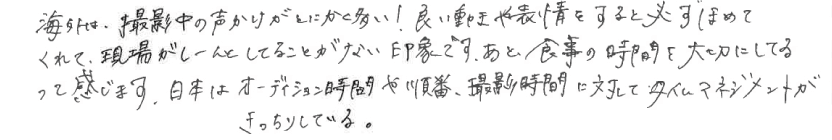 海外は、撮影中の声かけがとにかく多い！良い動きや表情をすると必ずほめて
くれて、現場がしーんとしてることがない印象です。あと、食事の時間を大切にしてる
って感じます。日本はオーディション時間や順番、撮影時間に対してタイムマネジメントが
きっちりしている。